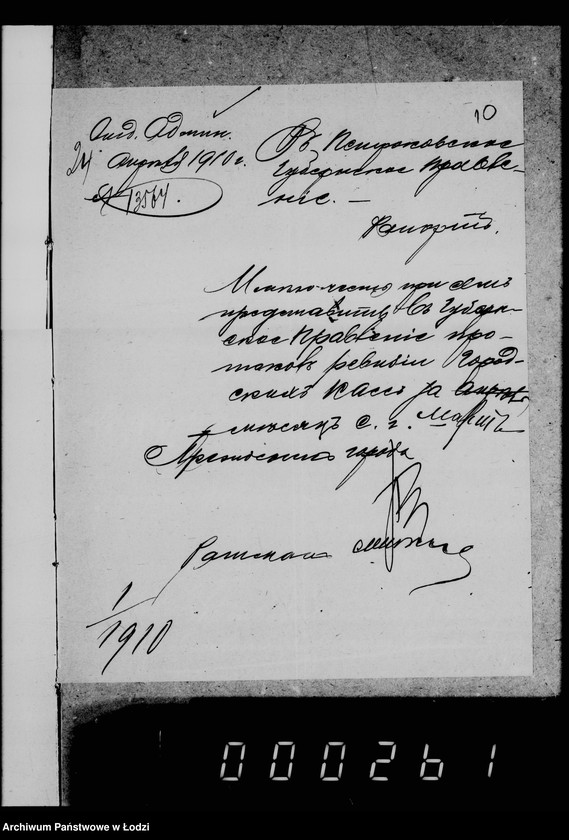 10
Отд. Админ.
24 Апреля 1910 г.
№ 13564.
Въ Петроковское
Губернское Правле-
ніе. —
Рапортъ.
при семъ
представить въ Губерн-
ское Правленіе про-
токолъ ревизіи Город-
скихъ кассъ за
мѣсяцъ с. г. Мартъ
Президентъ города
1/1910
000261
Archiwum Państwowe w Łodzi